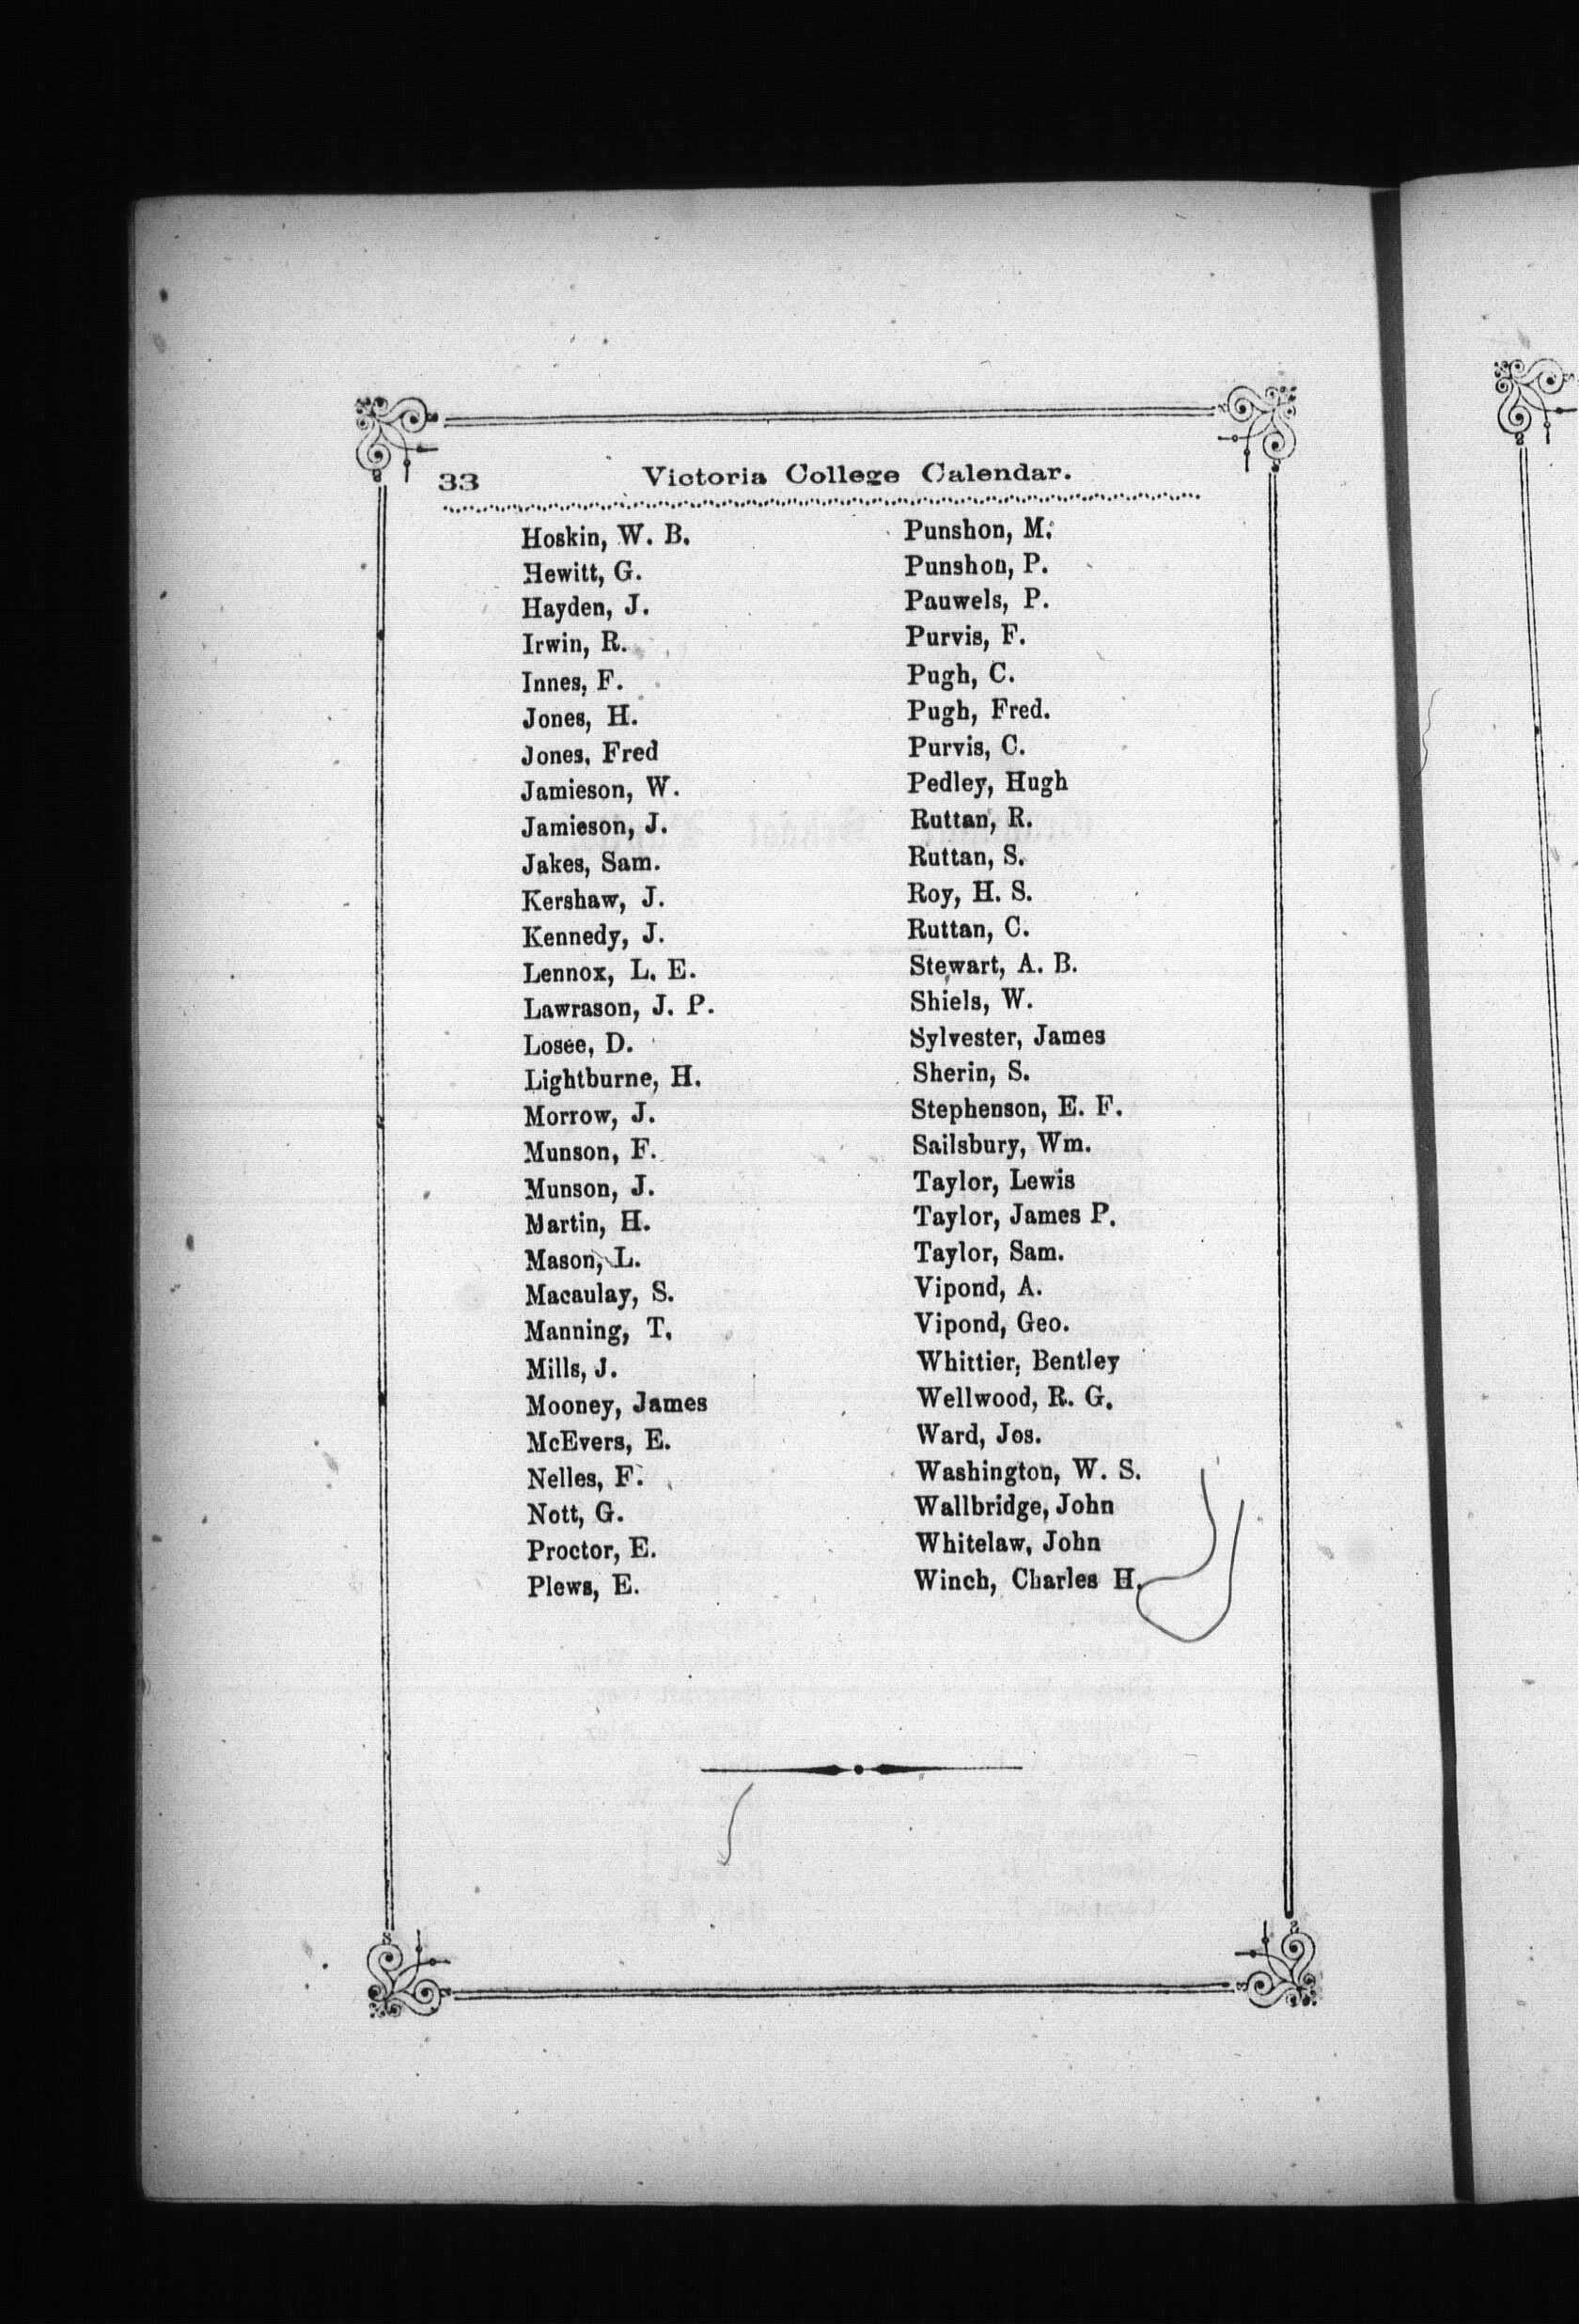 33 Victoria College Calendar.
Hoskin, W. B.
Hewitt, G.
Hayden, J.
Irwin, R.
Innes, F.
Jones, H.
Jones, Fred
Jamieson, W.
Jamieson, J.
Jakes, Sam.
Kershaw, J.
Kennedy, J.
Lennox, L. E.
Lawrason, J. P.
Losee, D.
Lightburne, H.
Morrow, J.
Munson, F.
Munson, J.
Martin, H.
Mason, L.
Macaulay, S.
Manning, T.
Mills, J.
Mooney, James
McEvers, E.
Nelles, F.
Nott, G.
Proctor, E.
Plews, E.
Punshon, M.
Punshon, P.
Pauwels, P.
Purvis, F.
Pugh, C.
Pugh, Fred.
Purvis, C.
Pedley, Hugh
Ruttan, R.
Ruttan, S.
Roy, H. S.
Ruttan, C.
Stewart, A. B.
Shiels, W.
Sylvester, James
Sherin, S.
Stephenson, E. F.
Sailsbury, Wm.
Taylor, Lewis
Taylor, James P.
Taylor, Sam.
Vipond, A.
Vipond, Geo.
Whittier, Bentley
Wellwood, R. G.
Ward, Jos.
Washington, W. S.
Wallbridge, John
Whitelaw, John
Winch, Charles H.